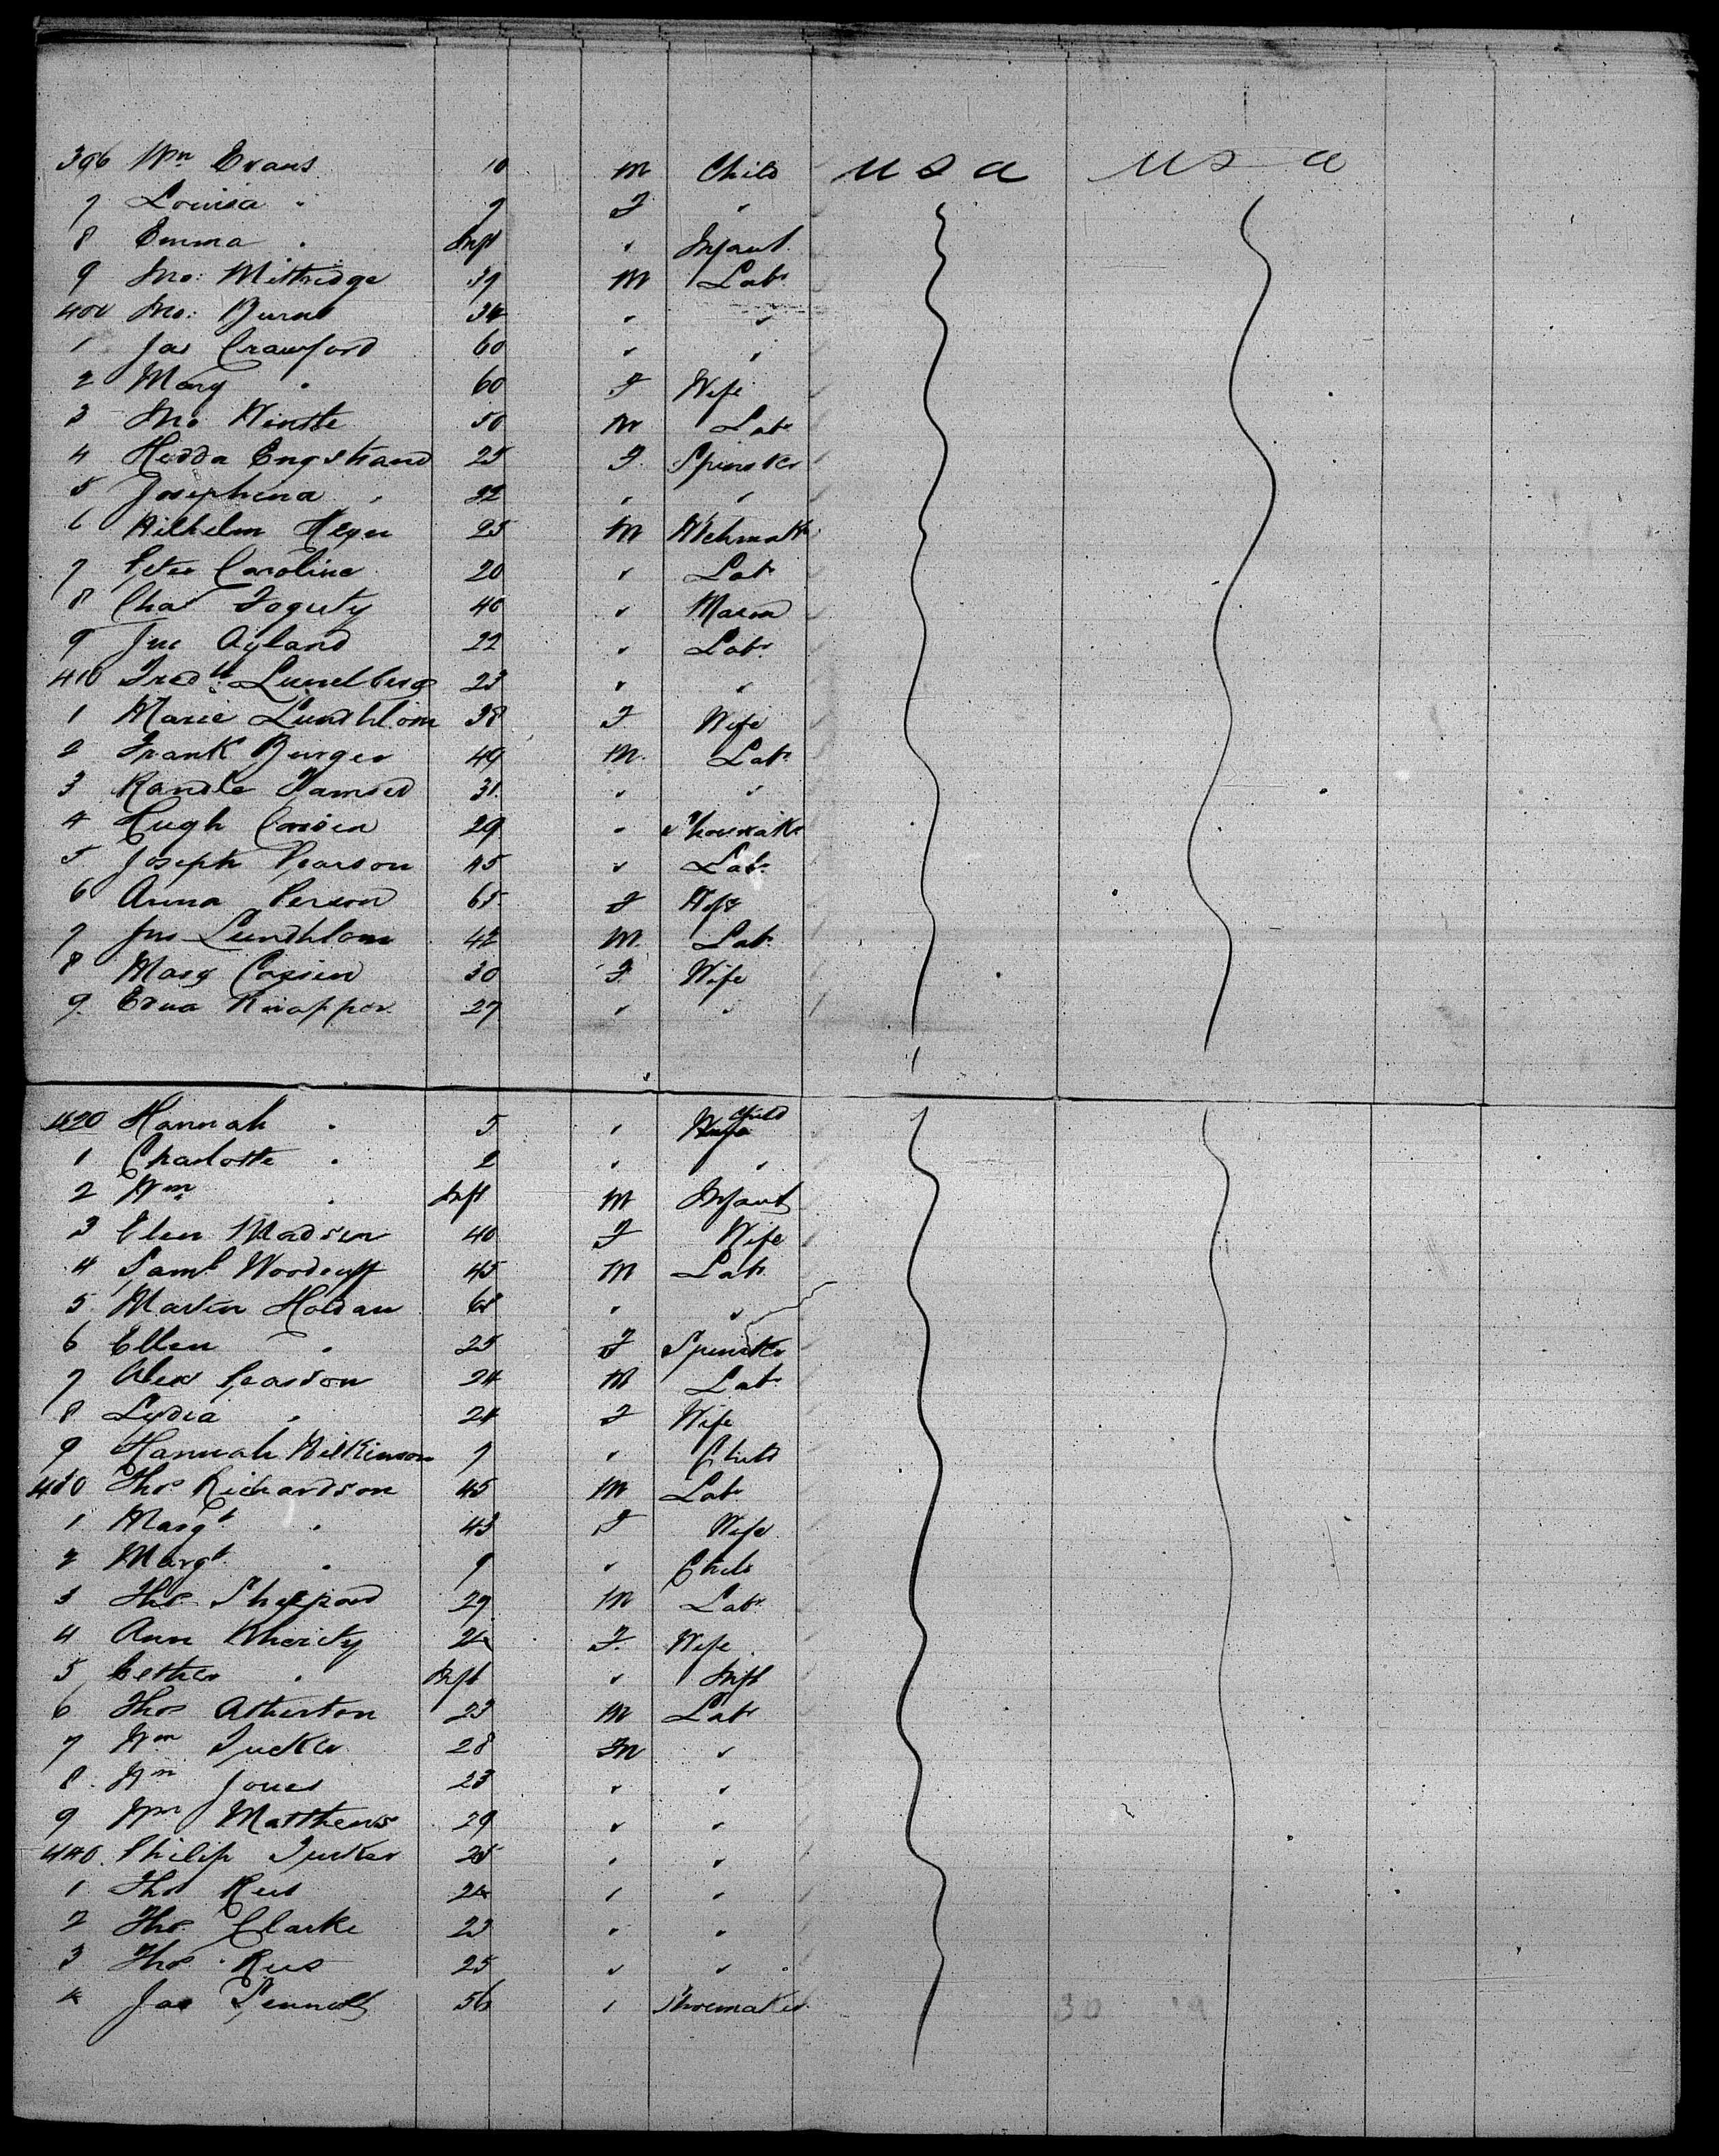 396 Wm Evans 10 M Child USA USA
7 Louisa " 7 F "
8 Emma " Inft " Infant
9 Jno: Mittridge 39 M Labr
400 Jno: Burns 34 " "
1 Jas Crawford 60 " "
2 Mary " 60 F Wife
3 Jno 50 M Labr
4 Hedda Engstrand 25 F. Spinster
5 Josephina " 22 " "
6 Wilhelm Heyn 25 M Wchmakr
7 Peter Caroline 20 " Labr
8 Chas Foguty 40 " Mason
9 Jno Ayland 22 " Labr
410 Fredk Lundberg 23 " "
1 Marie Lundhlom 38 F Wife
2 Frank Burger 49 M. Labr
3 Randle 31 " "
4 Hugh 29 " Shoemakr
5 Joseph Pearson 45 " Labr
6 Anna Person 65 F Wife
7 Jno Lundhlom 42 M. Labr
8 Mary 30 F. Wife
9. Edna Knapper 27 " "
420 Hannah " 5 " Child
1 Charlotte " 2 " "
2 Wm " Inft M Infant
3 Elen Madsen 40 F Wife
4 Saml Woodcuff 45 M Labr
5 Martin Holdan " "
6 Ellen " 25 F Spinster
7 Alex Pearson 24 M Labr
8 Lydia " 24 F Wife
9 Hannah Wilkinson 7 " Child
430 Thos Richardson 45 M Labr
1 Margt " 43 F Wife
2 Margt " 9 " Child
3 Thos Sheppard 29 M Labr
4 Ann 24 F. Wife
5 Esther " Inft " Inft
6 Thos Atherton 23 M Labr
7 Wm Tucker 28 M "
8 Wm Jones 23 " "
9 Wm Matthews 29 " "
440. Philip Tucker 25 " "
1 Thos Rees 24 " "
2 Thos Clarke 23 " "
3 Thos Rees 25 " "
4 Jas 56 " Shoemaker